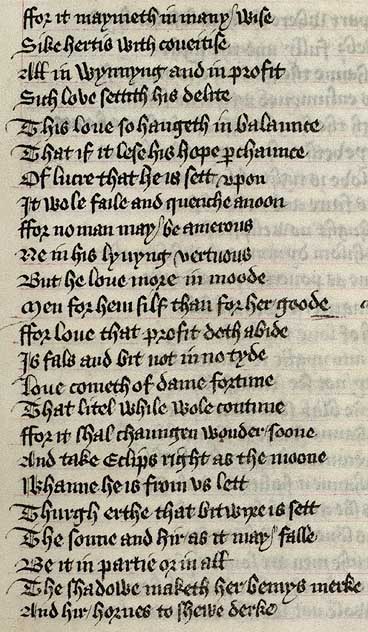 ffor it maymeth in many wise
Sike hertis with coveitise
All in wynnyng and in profit
Sich love settith his delite
This love so hangeth in balaunce
That if it lese his hope ꝑchaunce
Of lucre that he is sett vpon
It wole faile and quenche anoon
ffor no man may be amerous
Ne in his lyvyng vertuous
But he love more in moode
Men for hem silf than for her goode
ffor love that profit doth abide
Is fals and bit not in no tyde
Love cometh of dame fortune
That litel while wole contune
ffor it shal chaungen wonder soone
And take Eclips right as the moone
Whanne he is from vs lett
Thurgh erthe that bitwixe is sett
The sonne and hir as it may falle
Be it in partie or in all
The shadowe maketh her bemys merke
And hir hornes to shewe derke